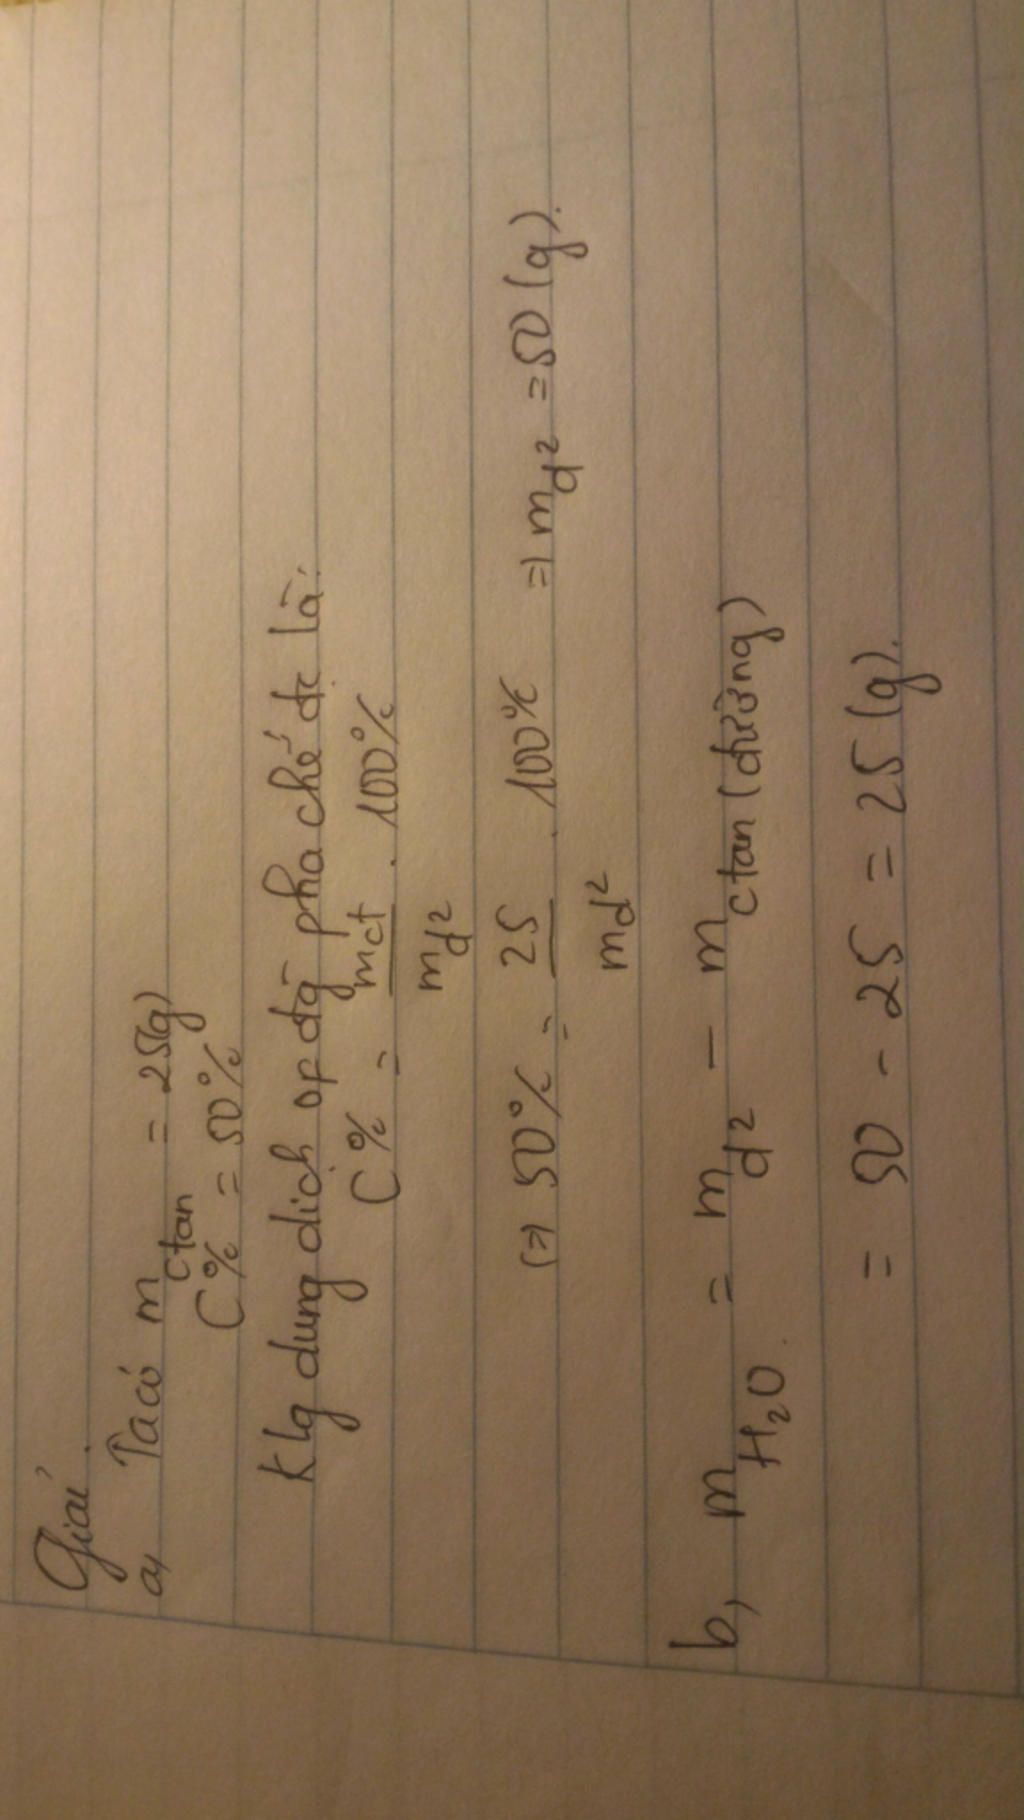 Giải.
a, Ta có m ctan = 25(g)
C% = 50%
Klg dung dịch op dg pha chế đc là:
C% = mct / md² . 100%
(=) 50% = 25 / md² . 100% =) md² = 50 (g).
b, m H₂O = m d² - m ctan (đường)
= 50 - 25 = 25 (g).